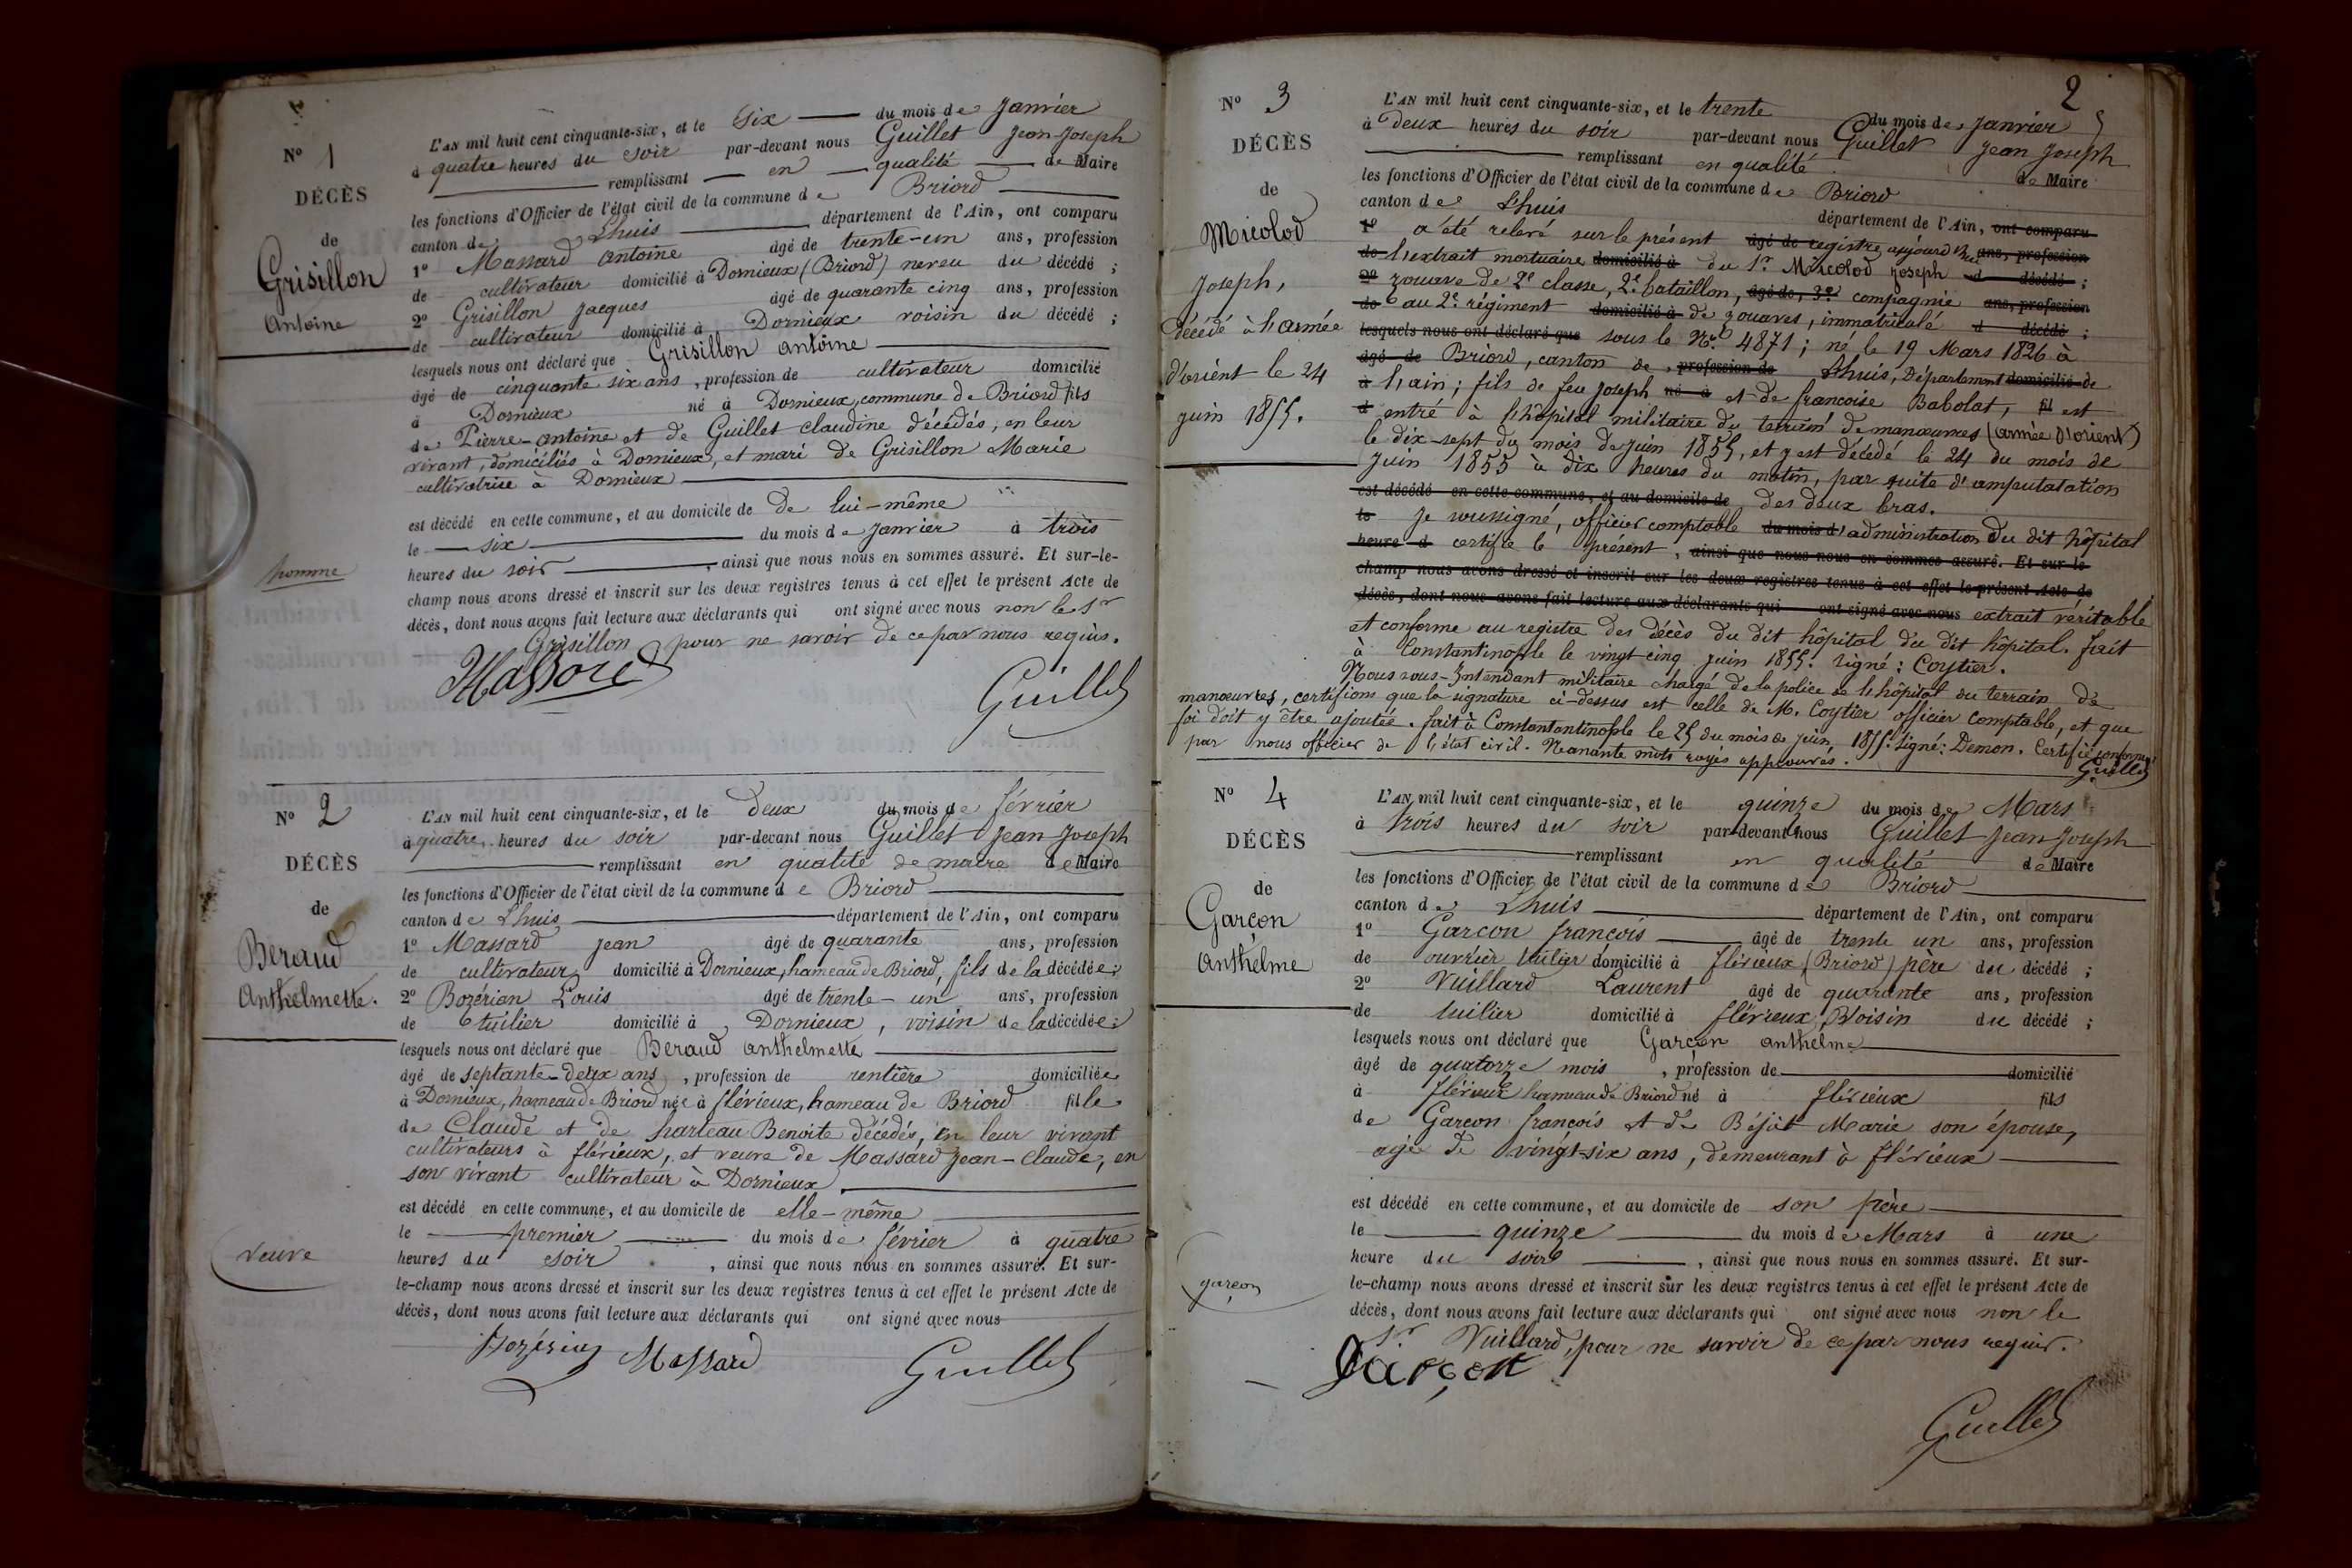 N° 1
DÉCÈS
de
Grisillon
Antoine
homme
L'AN mil huit cent cinquante-six, et le six du mois de Janvier
à quatre heures du soir par-devant nous Guillet Jean-Joseph
remplissant en qualité de Maire
les fonctions d'Officier de l'état civil de la commune de Briord
canton de Lhuis département de l'Ain, ont comparu
1° Massard Antoine âgé de trente-un ans, profession
de cultivateur domicilié à Dornieux (Briord) neveu du décédé ;
2° Grisillon Jacques âgé de quarante cinq ans, profession
de cultivateur domicilié à Dornieux voisin du décédé ;
lesquels nous ont déclaré que Grisillon Antoine
âgé de cinquante six ans, profession de cultivateur domicilié
à Dornieux né à Dornieux, commune de Briord fils
de Pierre-Antoine et de Guillet Claudine décédés, en leur
vivant, domiciliés à Dornieux, et mari de Grisillon Marie
cultivatrice à Dornieux
est décédé en cette commune, et au domicile de de lui-même
le six du mois de Janvier à trois
heures du soir, ainsi que nous nous en sommes assuré. Et sur-le-
champ nous avons dressé et inscrit sur les deux registres tenus à cet effet le présent Acte de
décès, dont nous avons fait lecture aux déclarants qui ont signé avec nous non le Sr
Grisillon pour ne savoir de ce par nous requis.
Massard Guillet
N° 2
DÉCÈS
de
Beraud
Anthelmette.
veuve
L'AN mil huit cent cinquante-six, et le deux du mois de février
à quatre heures du soir par-devant nous Guillet Jean Joseph
remplissant en qualité de maire de Maire
les fonctions d'Officier de l'état civil de la commune de Briord
canton de Lhuis département de l'Ain, ont comparu
1° Massard Jean âgé de quarante ans, profession
de cultivateur domicilié à Dornieux, hameau de Briord, fils de la décédée ;
2° Bozérian Louis âgé de trente-un ans, profession
de tuilier domicilié à Dornieux, voisin de la décédée ;
lesquels nous ont déclaré que Beraud Anthelmette
âgé de septante-deux ans, profession de rentière domiciliée
à Dornieux, hameau de Briord née à flérieux, hameau de Briord fille
de Claude et de Benoite décédés, en leur vivant
cultivateurs à flérieux, et veuve de Massard Jean-Claude, en
son vivant cultivateur à Dornieux.
est décédé en cette commune, et au domicile de elle-même
le premier du mois de février à quatre
heures du soir, ainsi que nous nous en sommes assuré. Et sur-
le-champ nous avons dressé et inscrit sur les deux registres tenus à cet effet le présent Acte de
décès, dont nous avons fait lecture aux déclarants qui ont signé avec nous
Bozérian Massard Guillet
2
N° 3
DÉCÈS
de
Micolod
Joseph,
Décédé à l'armée
d'orient le 24
juin 1855.
L'AN mil huit cent cinquante-six, et le trente du mois de Janvier
à deux heures du soir par-devant nous Guillet Jean Joseph
remplissant en qualité de Maire
les fonctions d'Officier de l'état civil de la commune de Briord
canton de Lhuis département de l'Ain, ont comparu
1° a été relevé sur le présent âgé de registre, aujourd'hui ans, profession
de l'extrait mortuaire domicilié à du Sr Micolod Joseph d décédé ;
2° zouave de 2e classe, 2e bataillon, âgé de, 3e compagnie ans, profession
de au 2e régiment domicilié à de zouaves, immatriculé d décédé ;
lesquels nous ont déclaré que sous le N° 4871 ; né le 19 Mars 1826 à
âgé de Briord, canton de, profession de Lhuis, Département domicilié de
à l'ain ; fils de feu Joseph né à et de francoise Babolat, fil est
d entré à l'hôpital militaire du terrain de manœuvres (armée d'orient)
le dix-sept du mois de Juin 1855, et y est décédé le 24 du mois de
Juin 1855 à dix heures du matin, par suite d'amputatation
est décédé en cette commune, et au domicile de des deux bras.
le Je soussigné, officier comptable du mois d'administration du dit hôpital
heure d certifie le présent, ainsi que nous nous en sommes assuré. Et sur-le-
champ nous avons dressé et inscrit sur les deux registres tenus à cet effet le présent Acte de
décès, dont nous avons fait lecture aux déclarants qui ont signé avec nous extrait véritable
et conforme au registre des décès du dit hôpital du dit hôpital. fait
à Constantinople le vingt cinq juin 1855. Signé : Coytier.
Nous sous-Intendant militaire chargé de la police de l'hôpital du terrain de
manœuvres, certifions que la signature ci-dessus est celle de M. Coytier officier comptable, et que
foi doit y être ajoutée. fait à Constantantinople le 25 du mois de juin, 1855. Signé : Demon. Certifié conforme
par nous officier de l'état civil. mots rayés approuvés.
Guillet
N° 4
DÉCÈS
de
Garçon
Anthelme
garçon
L'AN mil huit cent cinquante-six, et le quinze du mois de Mars
à trois heures du soir par-devant nous Guillet Jean Joseph
remplissant en qualité de Maire
les fonctions d'Officier de l'état civil de la commune de Briord
canton de Lhuis département de l'Ain, ont comparu
1° Garcon françois âgé de trente un ans, profession
de ouvrier tuilier domicilié à flérieux (Briord) père du décédé ;
2° Vuillard Laurent âgé de quarante ans, profession
de tuilier domicilié à flérieux, voisin du décédé ;
lesquels nous ont déclaré que Garçon anthelme
âgé de quatorze mois, profession de domicilié
à flérieux hameau de Briord né à flérieux fils
de Garcon françois et de Béjat Marie son épouse,
agée de vingt-six ans, demeurant à flérieux
est décédé en cette commune, et au domicile de son père
le quinze du mois de Mars à une
heure du soir, ainsi que nous nous en sommes assuré. Et sur-
le-champ nous avons dressé et inscrit sur les deux registres tenus à cet effet le présent Acte de
décès, dont nous avons fait lecture aux déclarants qui ont signé avec nous non le
Sr Vuillard, pour ne savoir de ce par nous requis.
Garçon
Guillet